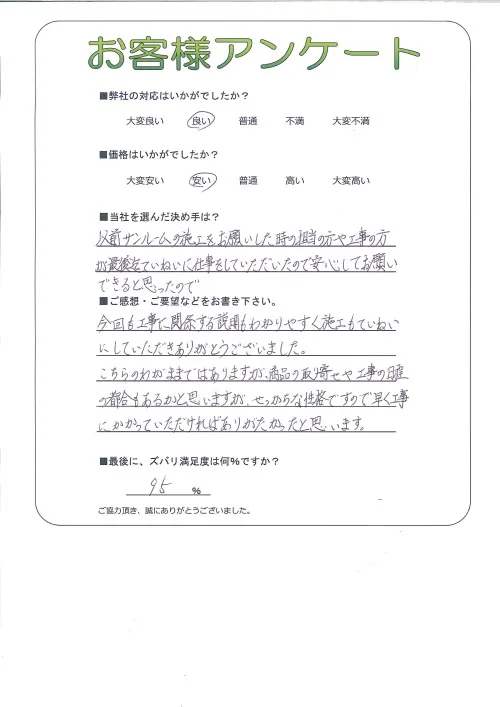 お客様アンケート
■弊社の対応はいかがでしたか？
大変良い 良い 普通 不満 大変不満
■価格はいかがでしたか？
大変安い 安い 普通 高い 大変高い
■当社を選んだ決め手は？
以前サンルームの施工をお願いした時の担当の方や工事の方
が最後までていねいに仕事をしていただいたので安心してお願い
できると思ったので
■ご感想・ご要望などをお書き下さい。
今回も工事に関係する説明もわかりやすく施工もていねい
にしていただきありがとうございました。
こちらのわがままではありますが、商品の取り寄せや工事の日程
の都合もあるかと思いますが、せっかちな性格ですので早く工事
にかかっていただければありがたかったと思います。
■最後に、ズバリ満足度は何％ですか？
95 ％
ご協力頂き、誠にありがとうございました。